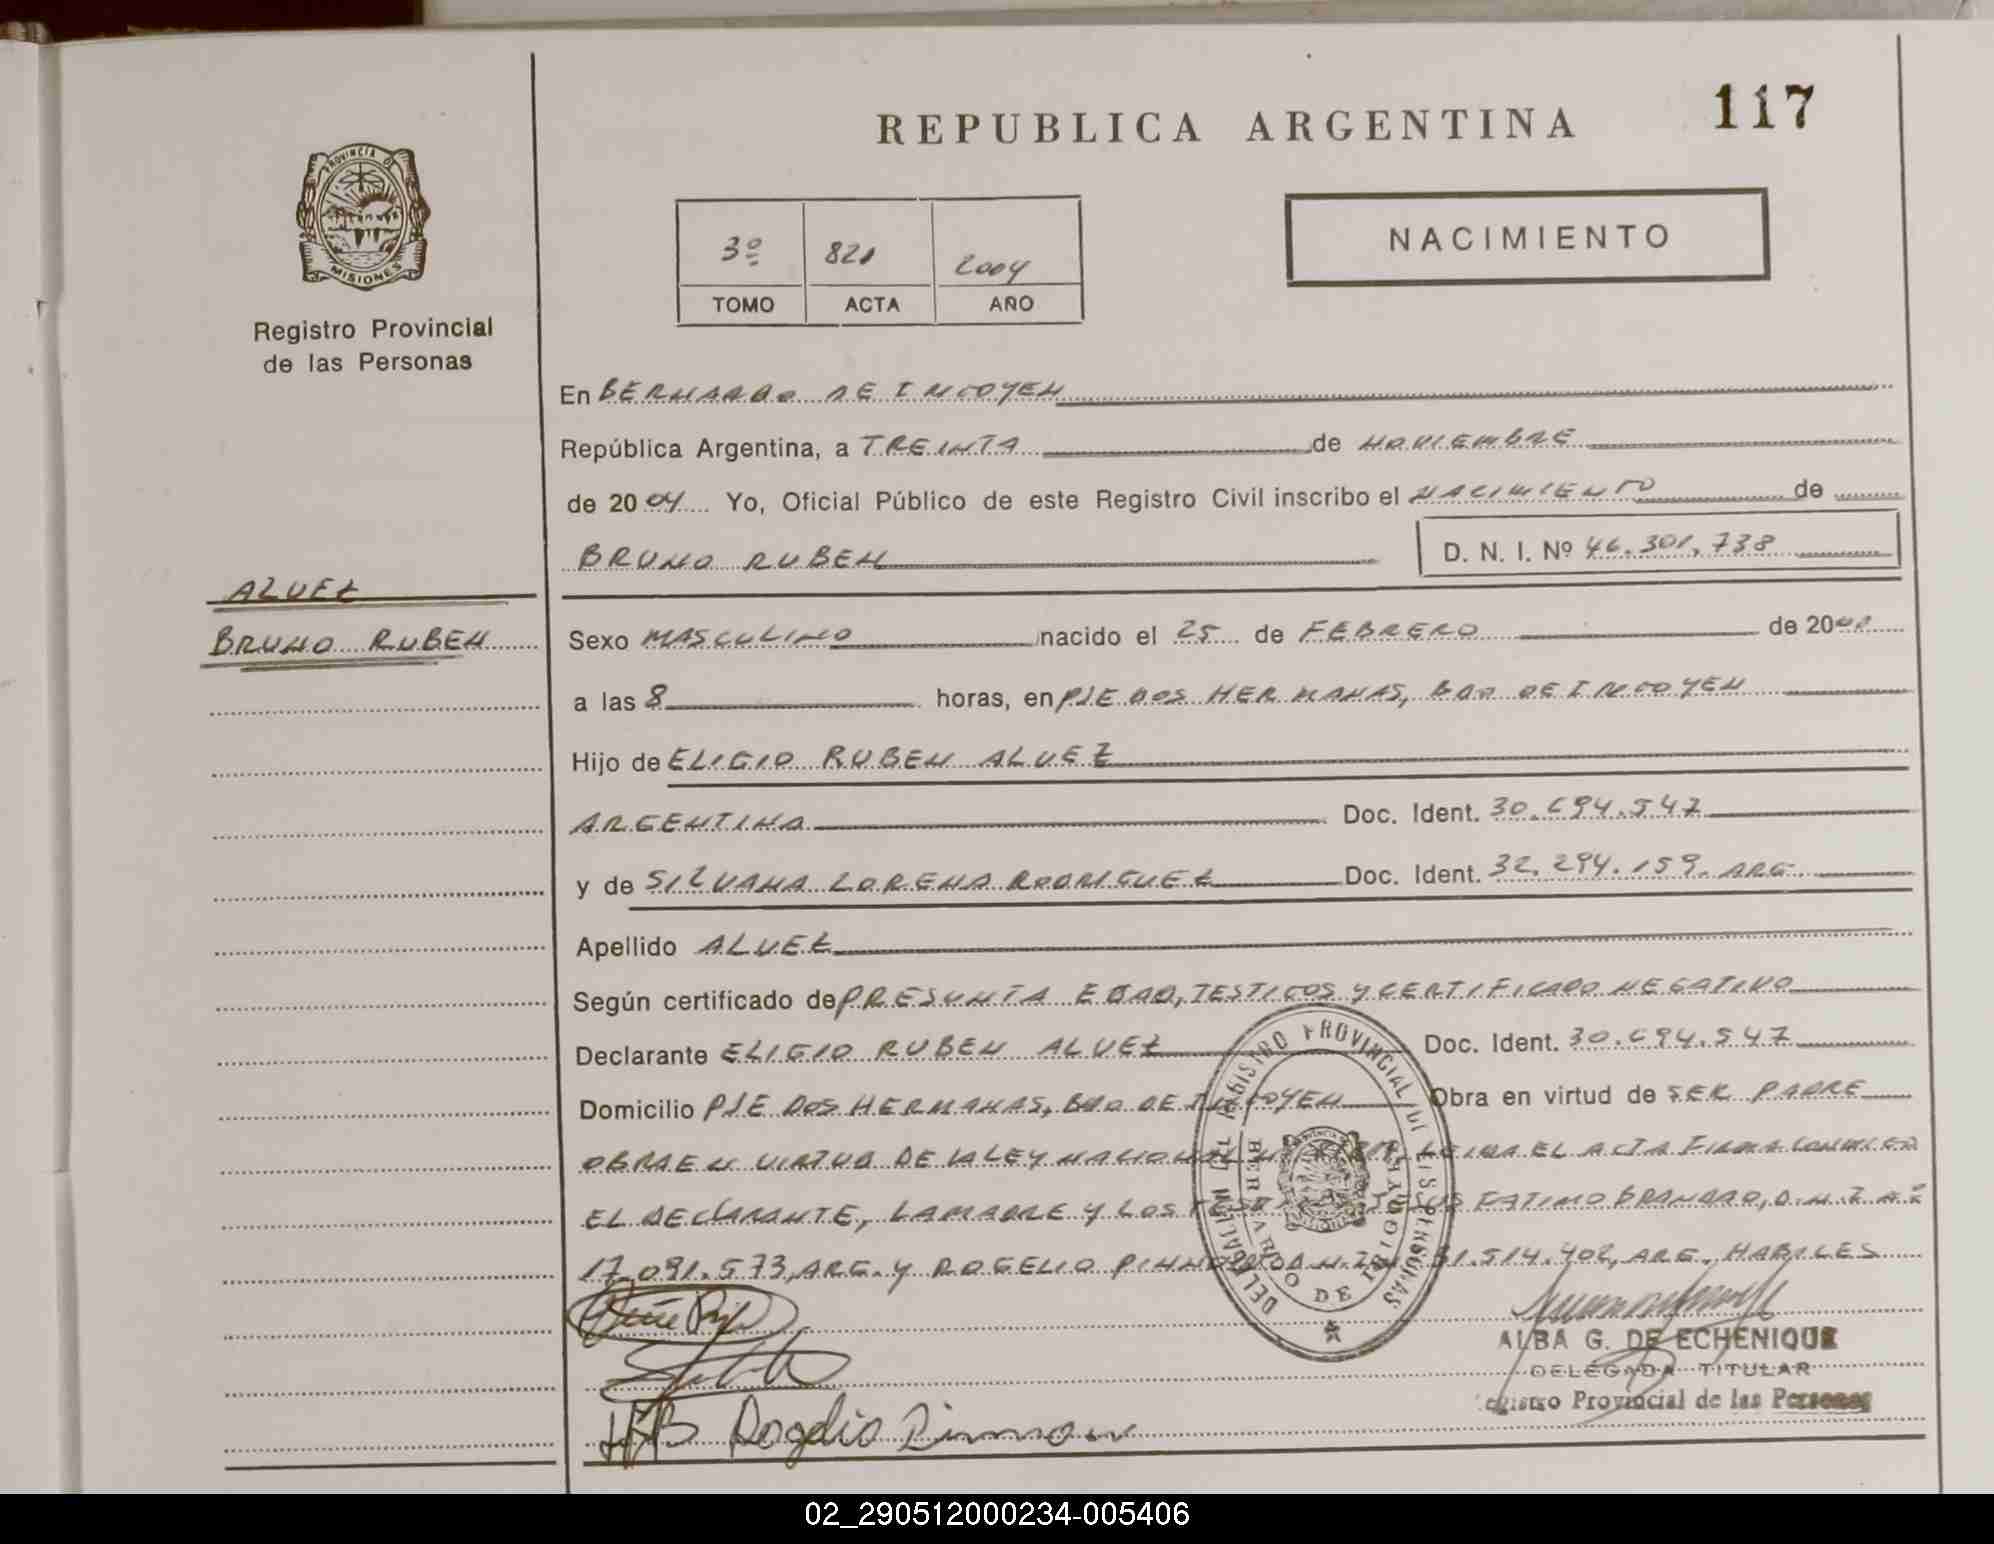 REPUBLICA ARGENTINA
117
PROVINCIA DE
MISIONES
Registro Provincial
de las Personas
3º 821 2004
TOMO ACTA AÑO
NACIMIENTO
En BERNARDO DE IRIGOYEN
República Argentina, a TREINTA de NOVIEMBRE
de 2004 Yo, Oficial Público de este Registro Civil inscribo el NACIMIENTO de
BRUNO RUBEN
D. N. I. Nº 46.301.738
ALVEZ
BRUNO RUBEN
Sexo MASCULINO nacido el 25 de FEBRERO de 20
a las 8 horas, en PJE DOS HERMANAS, BDO DE IRIGOYEN
Hijo de ELIGIO RUBEN ALVEZ
ARGENTINA Doc. Ident. 30.694.547
y de SILVANA LORENA RODRIGUEZ Doc. Ident. 32.294.159. ARG.
Apellido ALVEZ
Según certificado de PRESUNTA EDAD, TESTIGOS Y CERTIFICADO NEGATIVO
Declarante ELIGIO RUBEN ALVEZ Doc. Ident. 30.694.547
Domicilio PJE DOS HERMANAS, BDO DE IRIGOYEN Obra en virtud de SER PADRE
OBRA EN VIRTUD DE LA LEY NACIONAL LEIDA EL ACTA FIRMA CONMIGO
EL DECLARANTE, LA MADRE Y LOS FATIMO BRANDAO, D.N.I. Nº
17.091.573, ARG. Y ROGELIO 31.514.402, ARG., HABILES
DELEGACION DEL REGISTRO PROVINCIAL DE LAS PERSONAS
BERNARDO DE IRIGOYEN
ALBA G. DE ECHENIQUE
DELEGADA TITULAR
Registro Provincial de las Personas
Rogelio
02_290512000234-005406